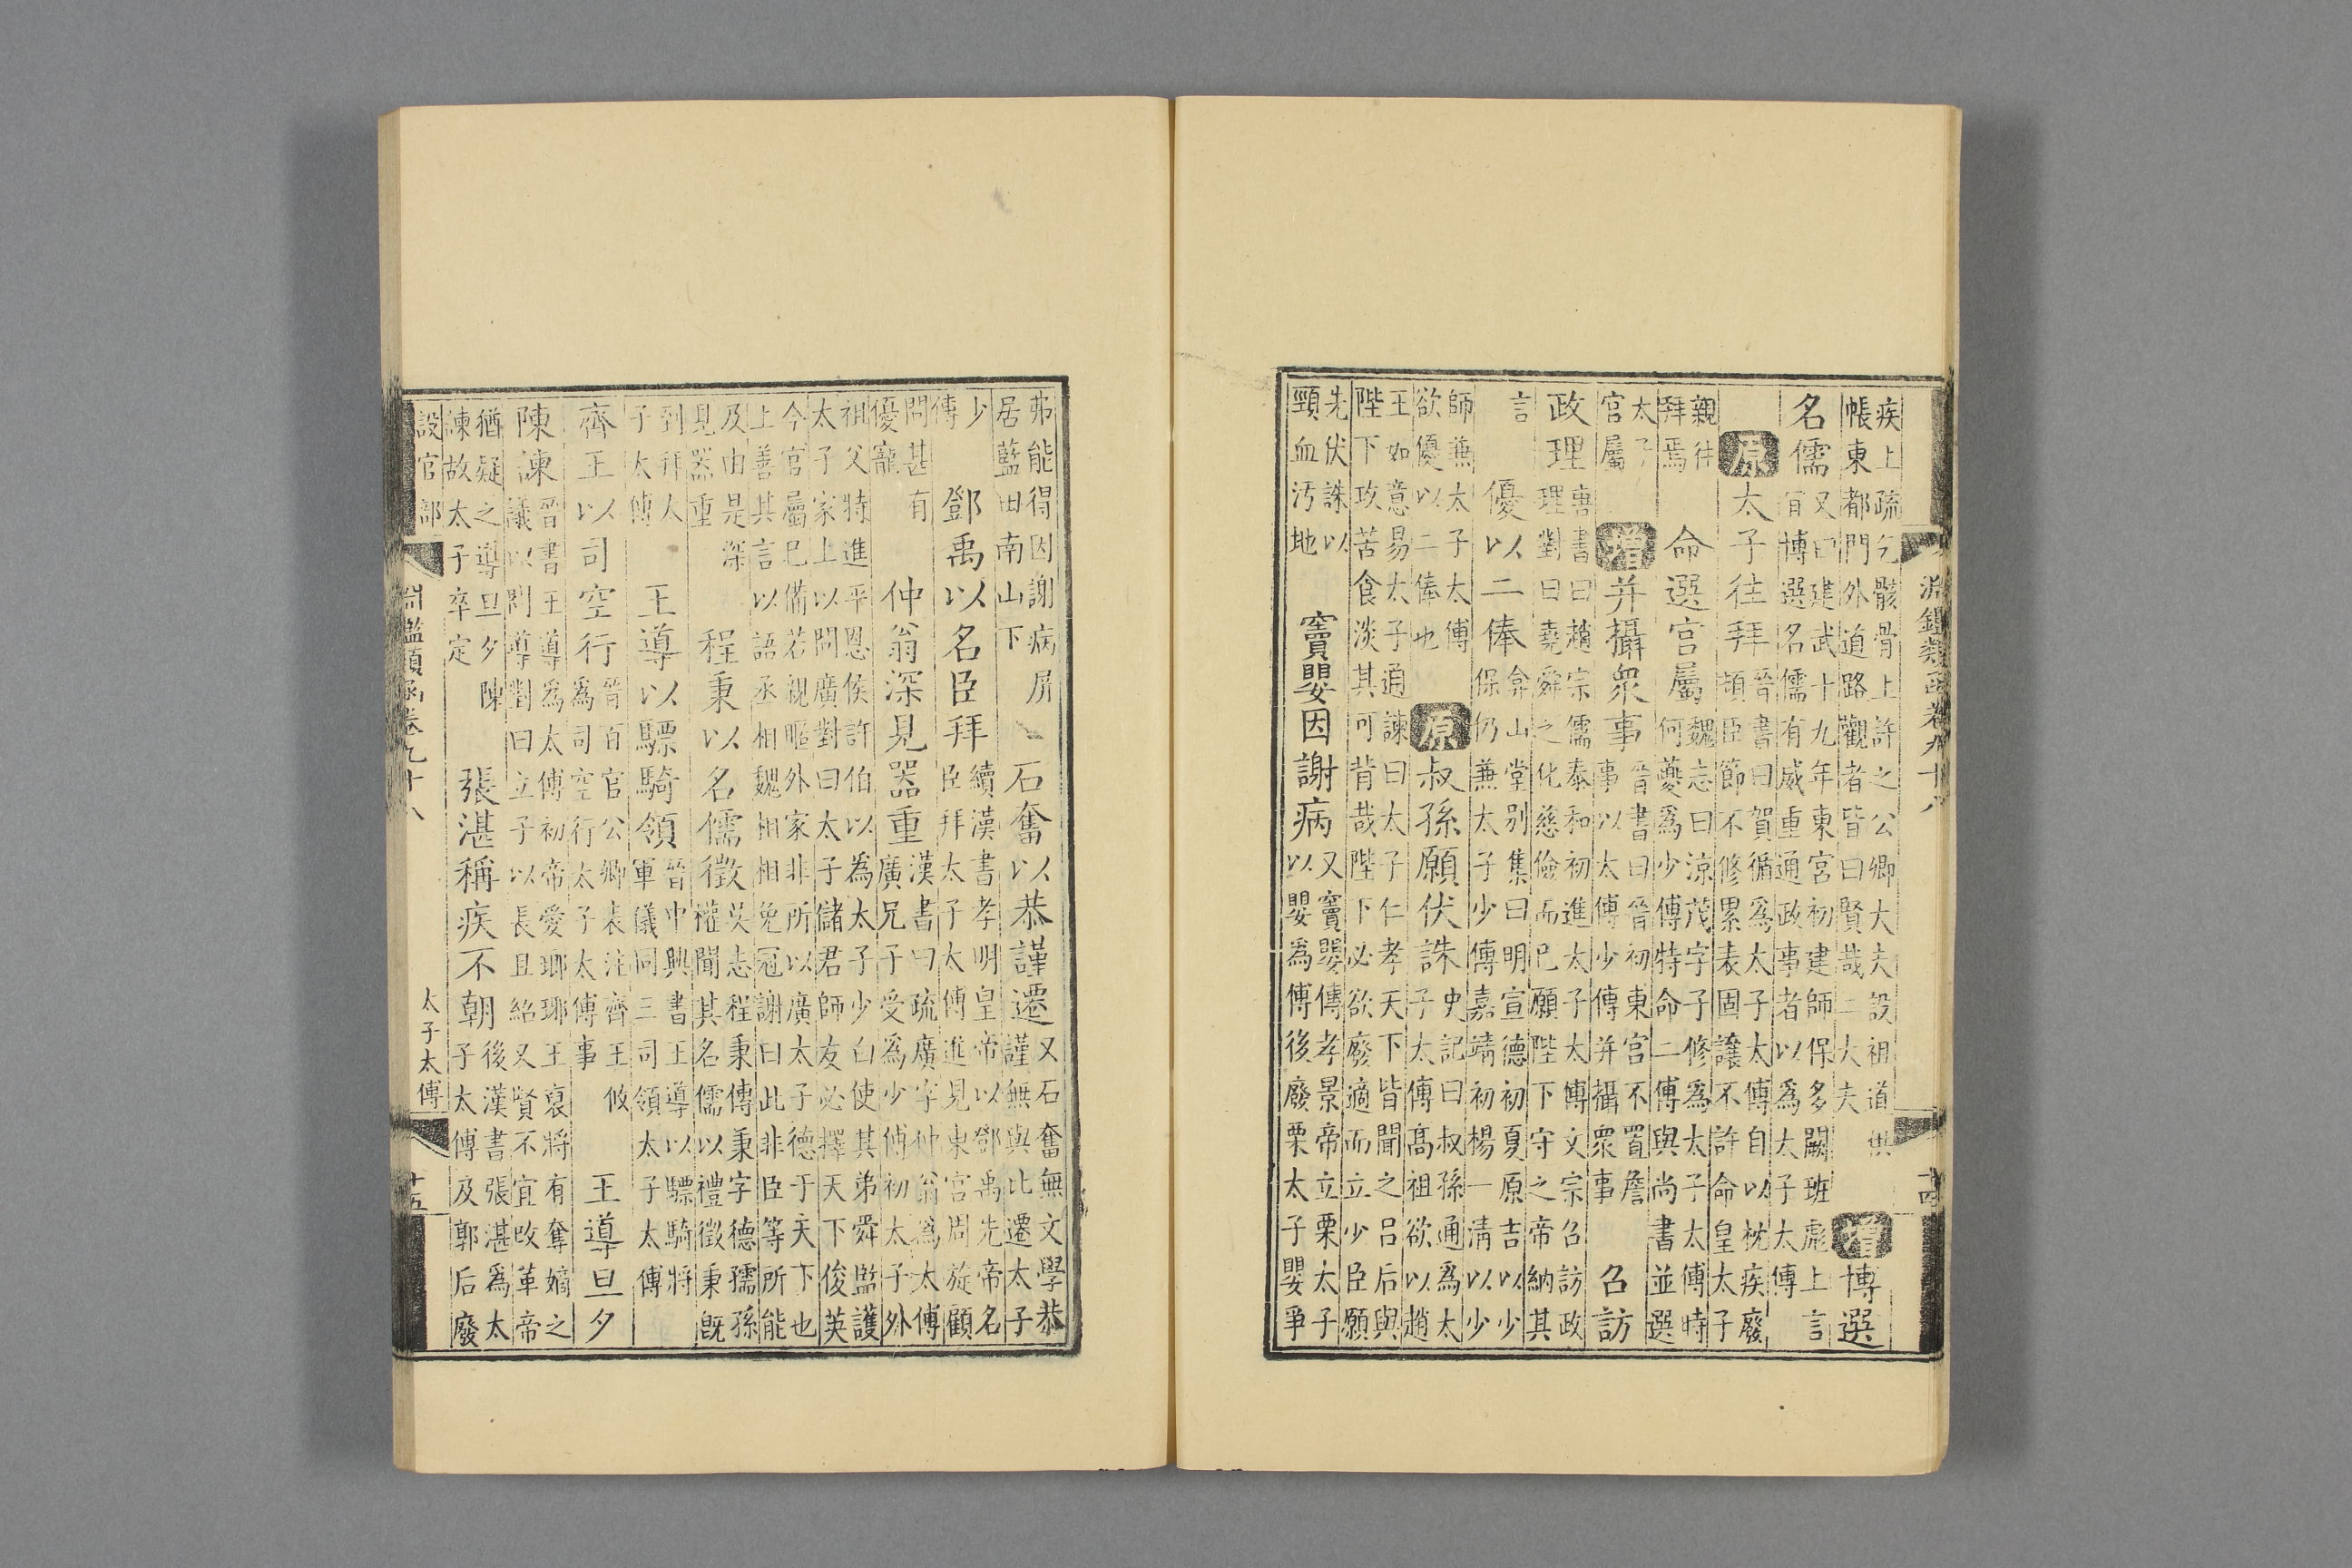 淵鑑類函卷九十八
十四
疾上疏乞骸骨上許之公卿大夫設祖道供
帳東都門外道路觀者皆曰賢哉二大夫
增博選
名儒
又曰建武十九年東宮初建師保多闕班彪上言
宜博選名儒有威重通政事者以爲太子太傅
原太子往拜
晉書曰賀循爲太子太傅自以枕疾廢
頓臣節不修累表固讓不許命皇太子
親往
拜焉
命選官屬
魏志曰涼茂字子修爲太子太傅時
何夔爲少傅特命二傅與尚書並選
太子
官屬
增并攝衆事
晉書曰晉初東宮不置詹
事以太傅少傅并攝衆事
召訪
政理
唐書曰趙宗儒泰和初進太子太傅文宗召訪政
理對曰堯舜之化慈儉而已願陛下守之帝納其
言
優以二俸
弇山堂別集曰明宣德初夏原吉以少
保仍兼太子少傅嘉靖初楊一清以少
師兼太子太傅
欲優以二俸也
原叔孫願伏誅
史記曰叔孫通爲太
子太傅高祖欲以趙
王如意易太子通諫曰太子仁孝天下皆聞之呂后與
陛下攻苦食淡其可背哉陛下必欲廢適而立少臣願
先伏誅以
頸血汚地
竇嬰因謝病
又竇嬰傳孝景帝立栗太子
以嬰爲傅後廢栗太子嬰爭
弗能得因謝病屏
居藍田南山下
石奮以恭謹遷
又石奮無文學恭
謹無與比遷太子
少
傅
鄧禹以名臣拜
續漢書孝明皇帝以鄧禹先帝名
臣拜太子太傅進見東宮周旋顧
問甚有
優寵
仲翁深見器重
漢書曰疏廣字仲翁爲太傅
廣兄子受爲少傅初太子外
祖父特進平恩侯許伯以爲太子少白使其弟舜監護
太子家上以問廣對曰太子儲君師友必擇天下俊英
今官屬已備若親暱外家非所以廣太子德于天下也
上善其言以語丞相魏相相免冠謝曰此非臣等所能
及由是深
見器重
程秉以名儒徵
吳志程秉傳秉字德孺孫
權聞其名儒以禮徵秉既
到拜太
子太傅
王導以驃騎領
晉中興書王導以驃騎將
軍儀同三司領太子太傅
齊王以司空行
晉百官公卿表注齊王攸
爲司空行太子太傅事
王導旦夕
陳諫
晉書王導爲太傅初帝愛瑯琊王裒將有奪嫡之
議以問導對曰立子以長且紹又賢不宜改革帝
猶疑之導旦夕陳
諫故太子卒定
張湛稱疾不朝
後漢書張湛爲太
子太傅及郭后廢
設官部
淵鑑類函卷九十八
太子太傅
十五